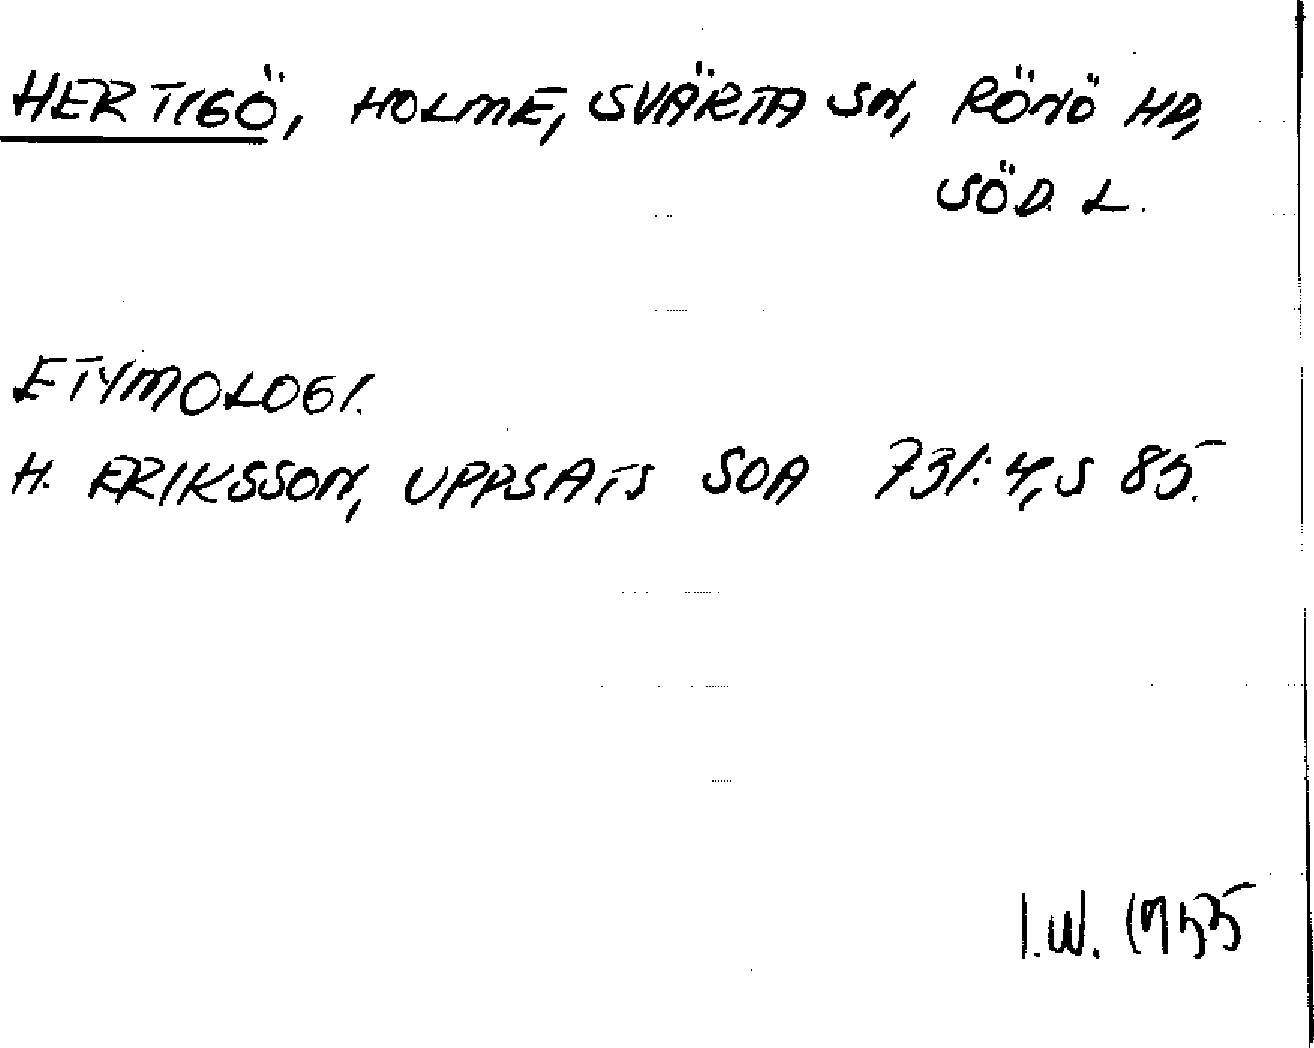 HERTIGÖ, HOLME, SVÄRTA SN, RÖNÖ HD,
SÖD. L.
ETYMOLOGI.
H. ERIKSSON, UPPSATS SOA 731:4, S 85.
I.W. 1955